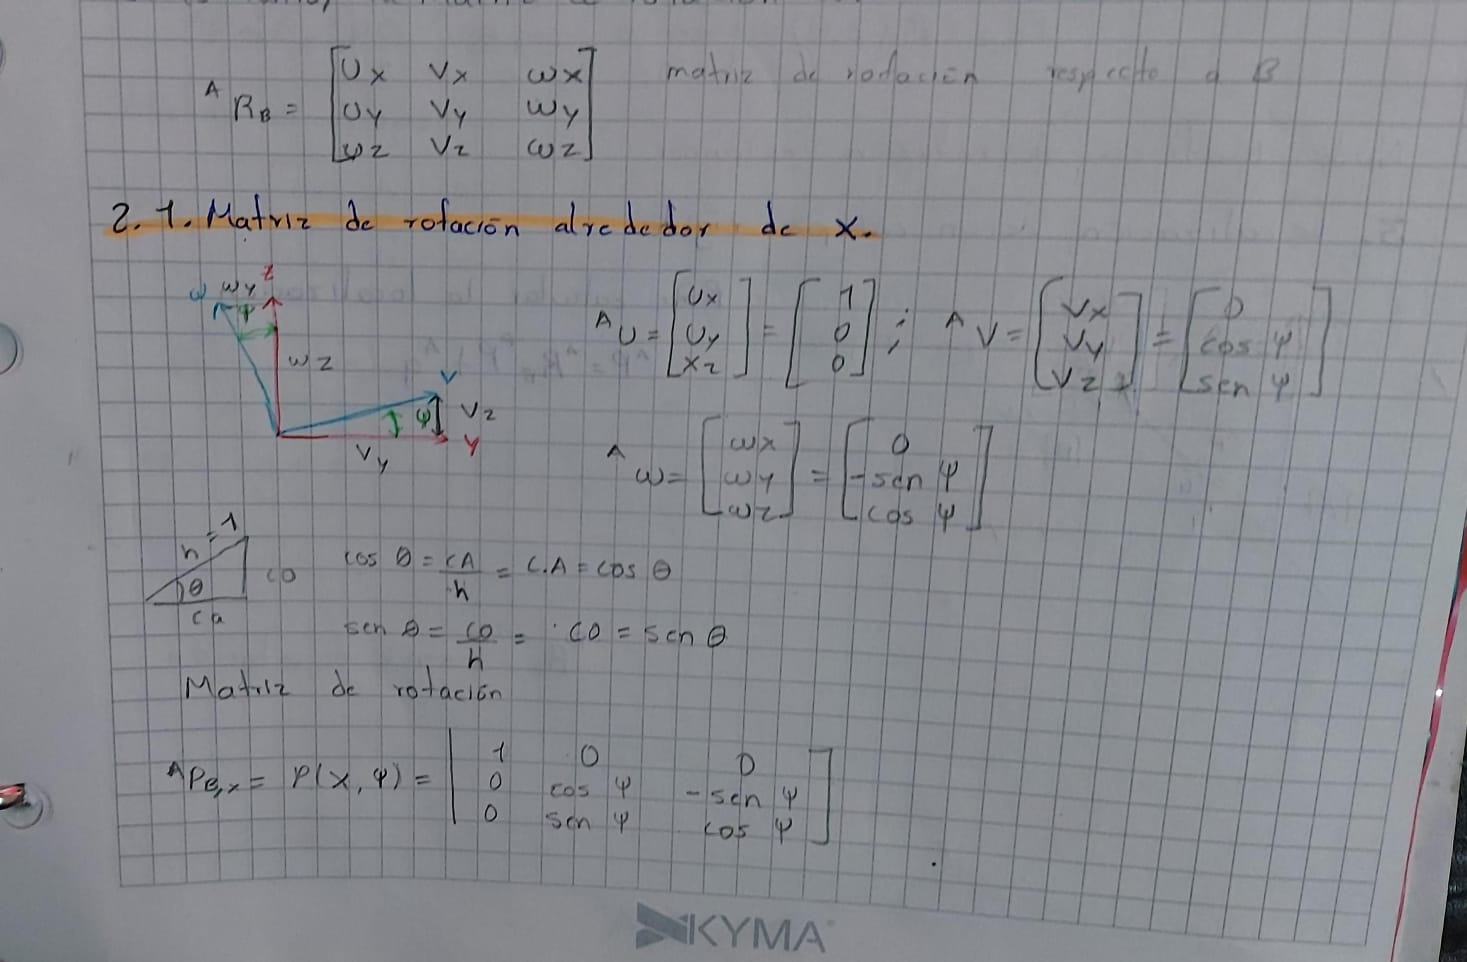 ᴬR_B = [Ux Vx ωx matriz de rotación respecto a B
Uy Vy ωy
ωz Vz ωz]
2.1. Matriz de rotación alrededor de x.
ω ωy z
ψ
ωz
V
ψ Vz
Vy Y
ᴬU = [Ux Uy xz] = [1 0 0] ; ᴬV = [Vx Vy Vz] = [0 cos ψ sen ψ]
ᴬω = [ωx ωy ωz] = [0 -sen ψ cos ψ]
h = 1
θ co
ca
cos θ = CA/h = C.A = cos θ
sen θ = co/h = co = sen θ
Matriz de rotación
ᴬP_B,x = P(x, ψ) = [1 0 0
0 cos ψ -sen ψ
0 sen ψ cos ψ]
KYMA